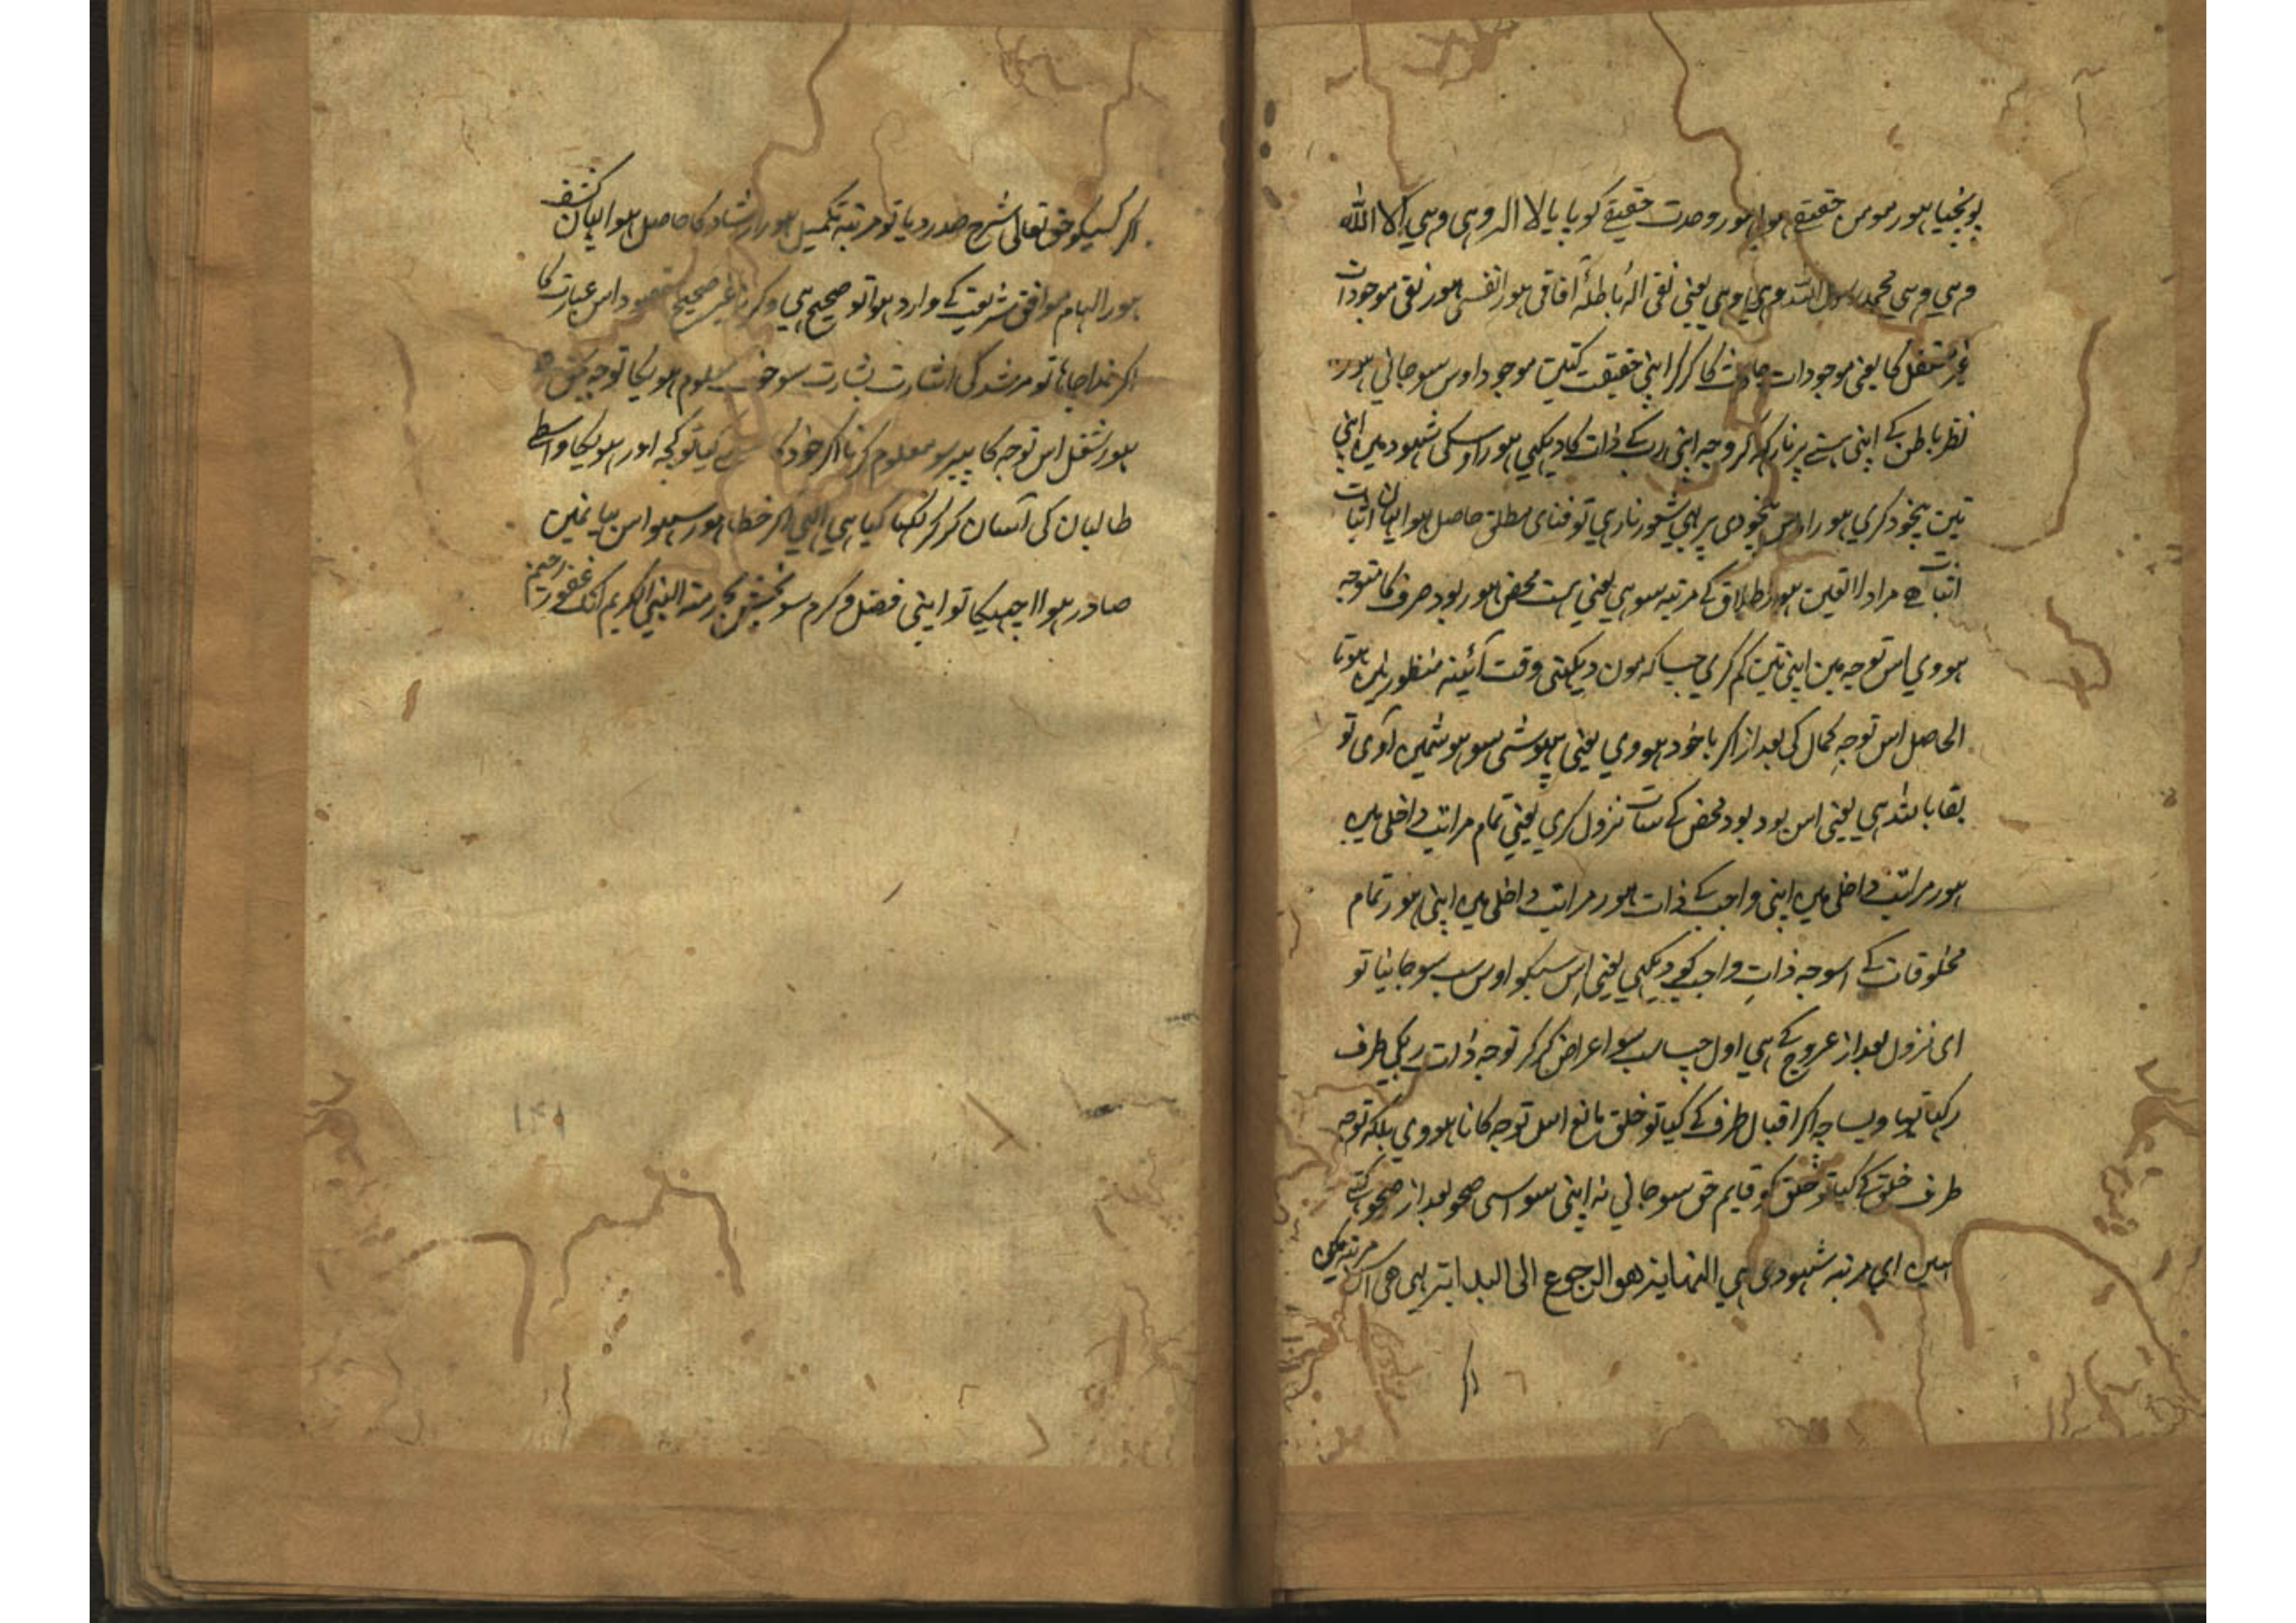 پونچیا ہور مومن حقیقے ہوا ہور وحدت حقیقے کو پایا لا الہ وہی وہی الا اللہ
وہی وہی محمد رسول اللہ وہی وہی یعنی نفی الہٰ باطلہ آفاقی ہور انفسی ہور نفی موجودات
غیر مستقل کا یعنی موجودات حادث کا کرکر اپنی حقیقت کتیں موجود اوس سو جانی ہور
نظر باطن کے اپنی ہستے پر نا رکھ کر وجہ اپنی رب کے ذات کا دیکہی ہور اوسکی شہود میں اپنی
تین بیخود کری ہور اوس بیخودی پر بہی شعور ناری تو فنای مطلق حاصل ہوا یہان اثبات
اثبات مراد لا تعین ہور اطلاق کے مرتبہ سو ہی یعنی ہست محض ہور بود صرف کا متوجہ
ہووی اس توجہ مین اپنی تین گم کری جیسا کہ مون دیکہتی وقت آئینہ منظور نہیں ہوتا
الحاصل اس توجہ کمال کی بعد از اگر باخود ہووی یعنی بیہوشی سو ہوشمین آوی تو
بقا باللہ ہی یعنی اس بود بود محض کے سات نزول کری یعنی تمام مراتب داخلی میں
ہور مراتب داخلی میں اپنی واجب کے ذات ہور مراتب داخلی میں اپنی ہور تمام
مخلوقات کے اسوجہ ذات واجب کے دیکہی یعنی اس سبکو اوس سب سو جانیا تو
ای نزول بعد از عروج کے ہی اول جیسا سب سو اعراض کرکر توجہ ذات رب کی طرف
رکہیا تہا ویسا چہ اگر اقبال طرف کے کیا تو خلق مانع اس توجہ کا نا ہووی بلکہ توجہ
طرف خلق کے کیا تو خلق کو قایم حق سو جانی نہ اپنی سو اسی صحو بعد از صحو کتے
ہین ای مرتبہ شہودی ہی النہایۃ هو الرجوع الی البدایۃ یہی ہی اس مرتبہ میں
اگر
اگر کسیکو حق تعالی شرح صدر دیا تو مرتبہ تکمیل ہور ارشاد کا حاصل ہوا یہان کشف
ہور الہام موافق شریعت کے وارد ہوا تو صحیح ہی وگرنا غیر صحیح مقصود اس عبارت کا
اگر خدا چاہا تو مرشد کی اشارت بشارت سو خوب معلوم ہویگا توجہ
ہور شغل اس توجہ کا پیر سو معلوم کرنا اگر خود کیا تو کچہ اور ہویگا واسطے
طالبان کی آسان کرکر لکہا گیا ہی الہی اگر خطا ہور سہو اس بیانمین
صادر ہوا اچہیگا تو اپنی فضل و کرم سو بخش بحرمتہ النبی الکریم انک غفور رحیم